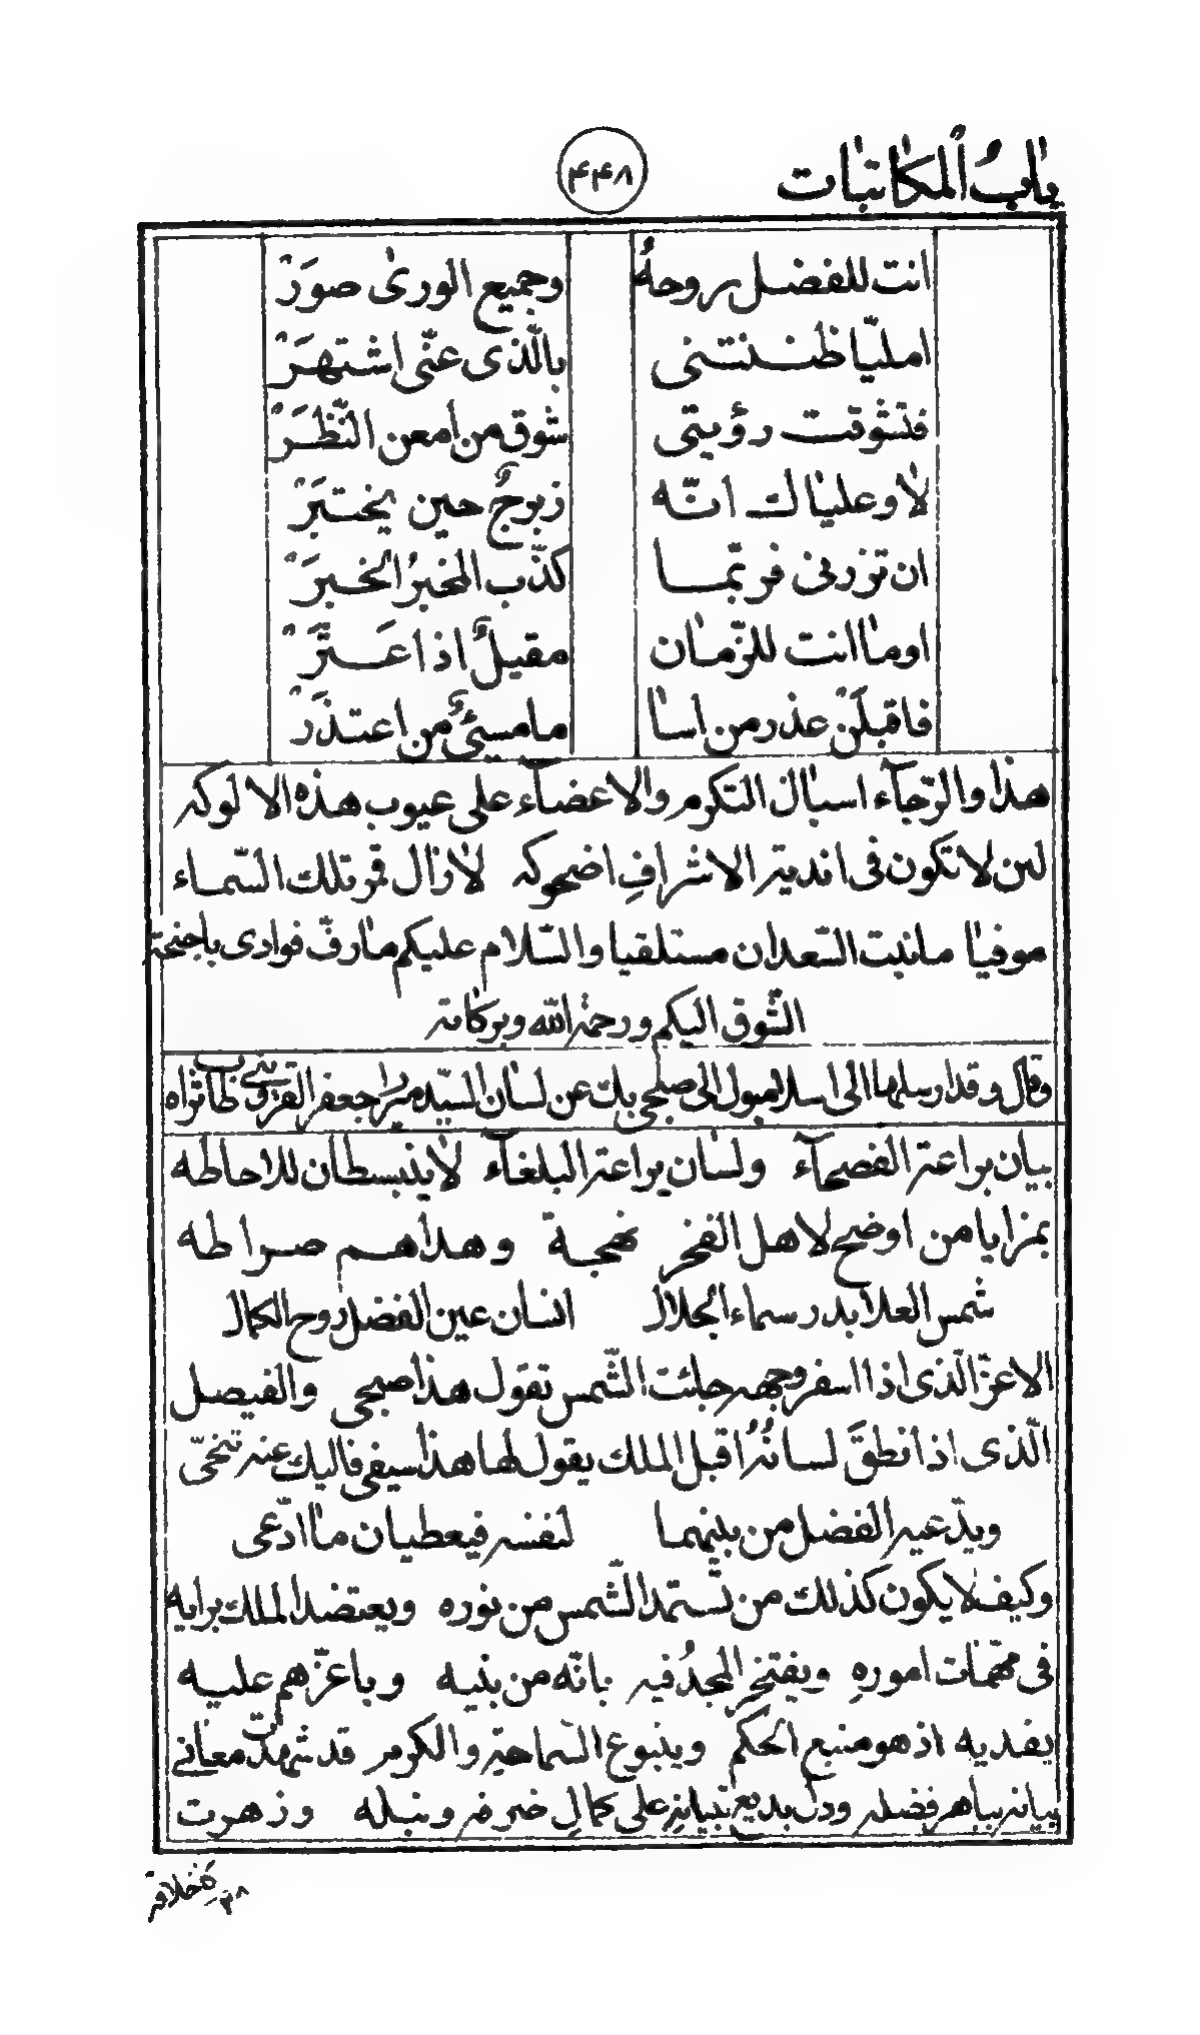 باب المكاتبات
۴۴۸
انت للفضل روحهُ وجميع الورى صوَرْ
امليّا ظننتنى بالّذى عنّى اشتهَرْ
فتشوقت رؤيتى شوق من امعن النّظَرْ
لا وعلياك انّه زبرجٌ حين يختبَرْ
ان تزرنى فربّما كذّب المخبرُ الخبرَْ
اوما انت للزّمان مقيلٌ اذا عَثَرْ
فاقبلَنْ عذر من اسا ما مسيئٌ من اعتذَرْ
هذا والرّجآء اسبال التكرم والاعضآء على عيوب هذه الالوكه
لئن لا تكون فى اندية الاشرافِ اضحوكه لا زال قمر تلك السّماء
موفيا مانبت السّعدان مستلقيا والسّلام عليكم مارفّ فوادى باجنحة
الشّوق اليكم ورحمة الله وبركاته
وقال وقد ارسلها الى اسلامبول الى صبحى بك عن لسان السيّد ميرزا جعفر القزوينى طاب ثراه
بيان براعة الفصحآء ولسان يراعة البلغآء لا ينبسطان للاحاطه
بمزايا من اوضح لاهل الفخر نهجة وهداهم صراطه
شمس العلا بدر سماء الجلال انسان عين الفضل روح الكمال
الاعزّ الّذى اذا اسفر وجهه جائت الشّمس تقول هذا صبحى والفيصل
الّذى اذا نطقَ لسانُهُ اقبل الملك يقول لها هذا سيفى فاليك عنه تنحّى
ويدّعيه الفضل من بينهما لنفسه فيعطيان ما ادّعى
وكيف لا يكون كذلك من تستمد الشّمس من نوره ويعتضد الملك برايه
فى مهمّات امورهِ ويفتخر المجدُ فيه بانّه من بنيه وباعزّهم عليه
يفديه اذ هو منبع الحكم وينبوع السّماحة والكرم قد شهدت معانى
بيانه بباهر فضله ودلّ بديع تبيانهِ على كمالِ ظرفه ونبله وزهرت
۳۸